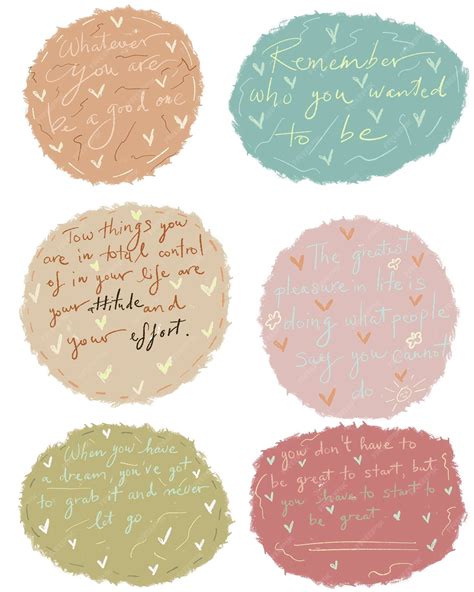 Whatever
you are
be a good one
Remember
who you wanted
to be
Tow things you
are in total control
of in your life are
your attitude and
your effort.
The greatest
pleasure in life is
doing what people
say you cannot
do
When you have
a dream, you've got
to grab it and never
let go
you don't have to
be great to start, but
you have to start to
be great